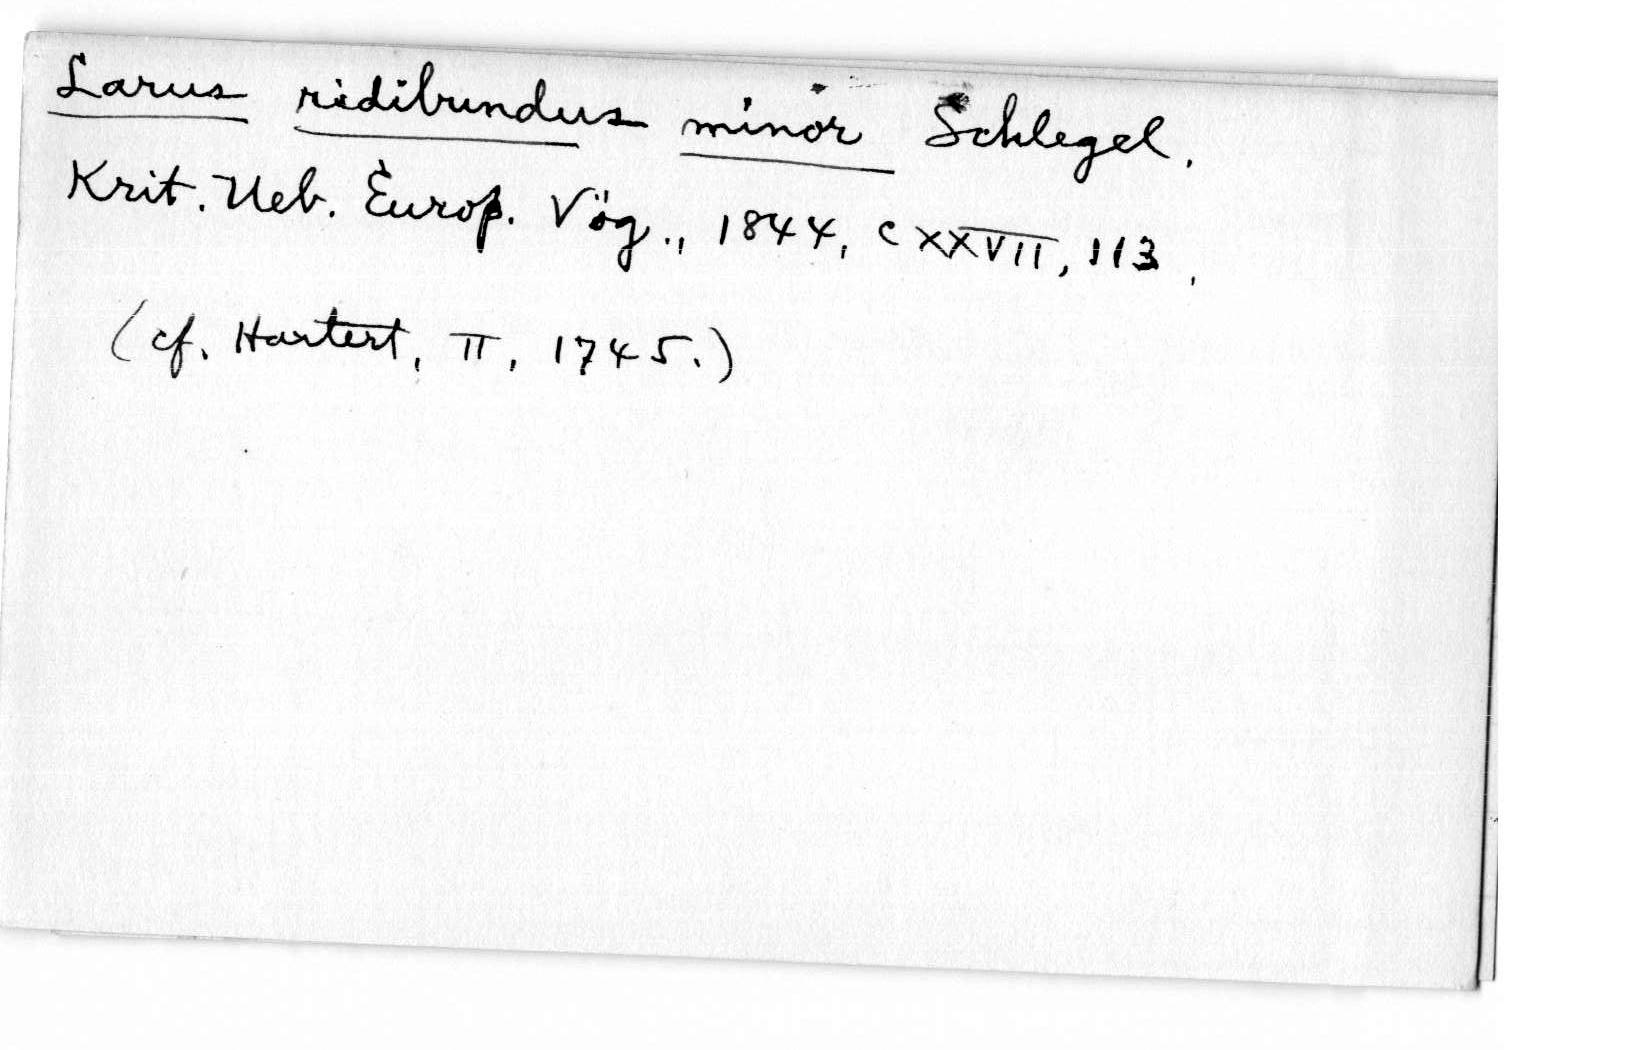 Larus ridibundus minor Schlegel.
Krit. Ueb. Europ. Vög., 1844, CXXVII, 113.
(cf. Hartert, II, 1745.)